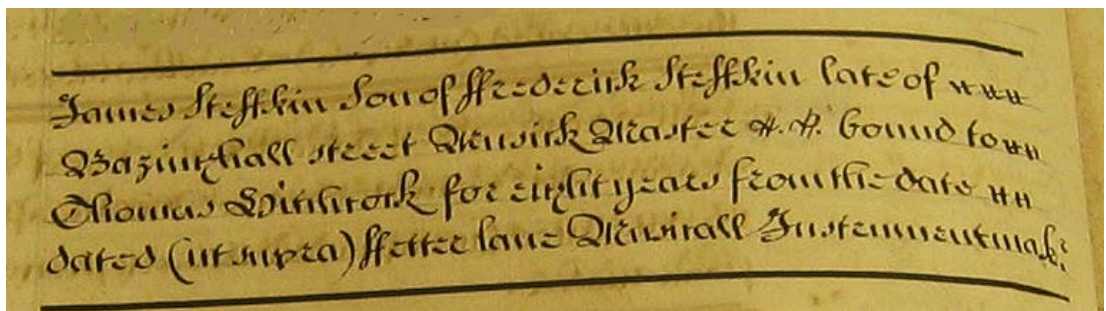 James Steffkin Son of ffrederick Steffkin late of
Bazinghall street Musick Master bound to
Thomas for eight years from the date
dated (ut supra) ffetter lane Musicall Instrumentmakr: